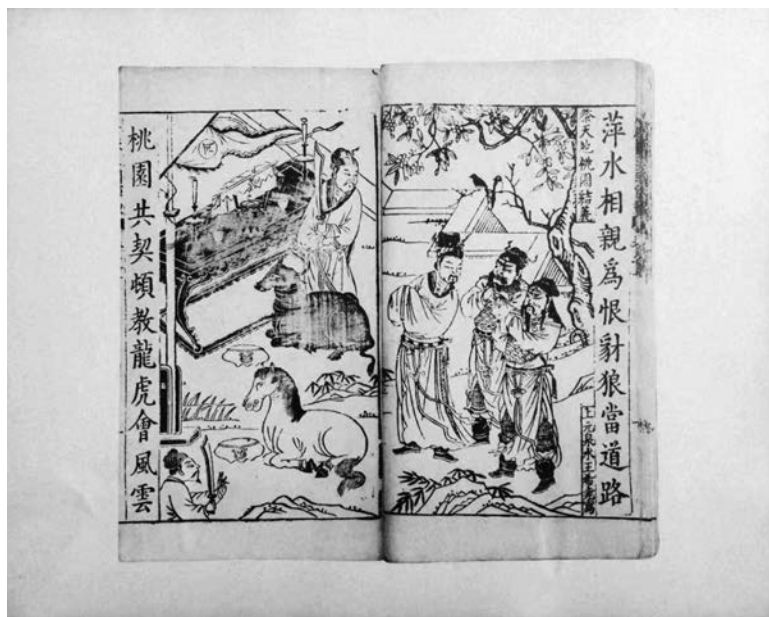 萍水相親爲恨豺狼當道路
祭天地桃園結義
上元泉水王希堯寫
桃園共契頓教龍虎會風雲